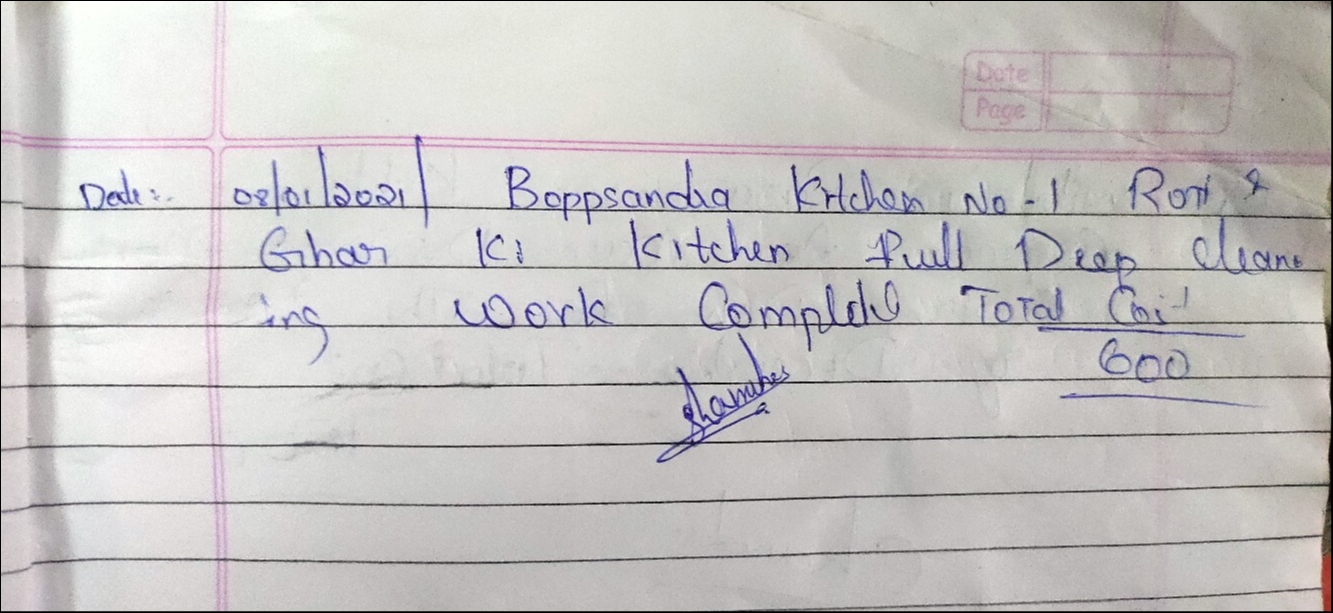 Date
Page
Date:- 08/01/2021 Boppsandra Kitchen No-1 Roti &
Ghar Ki Kitchen Full Deep Clean
ing Work Complete Total Cost
600